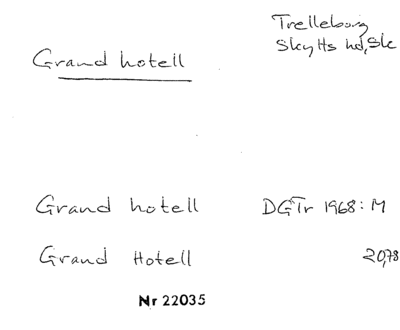 Trelleborg
Skytts hd, Sk
Grand hotell
Grand hotell DGTr 1968: M
Grand Hotell 20,78
Nr 22035